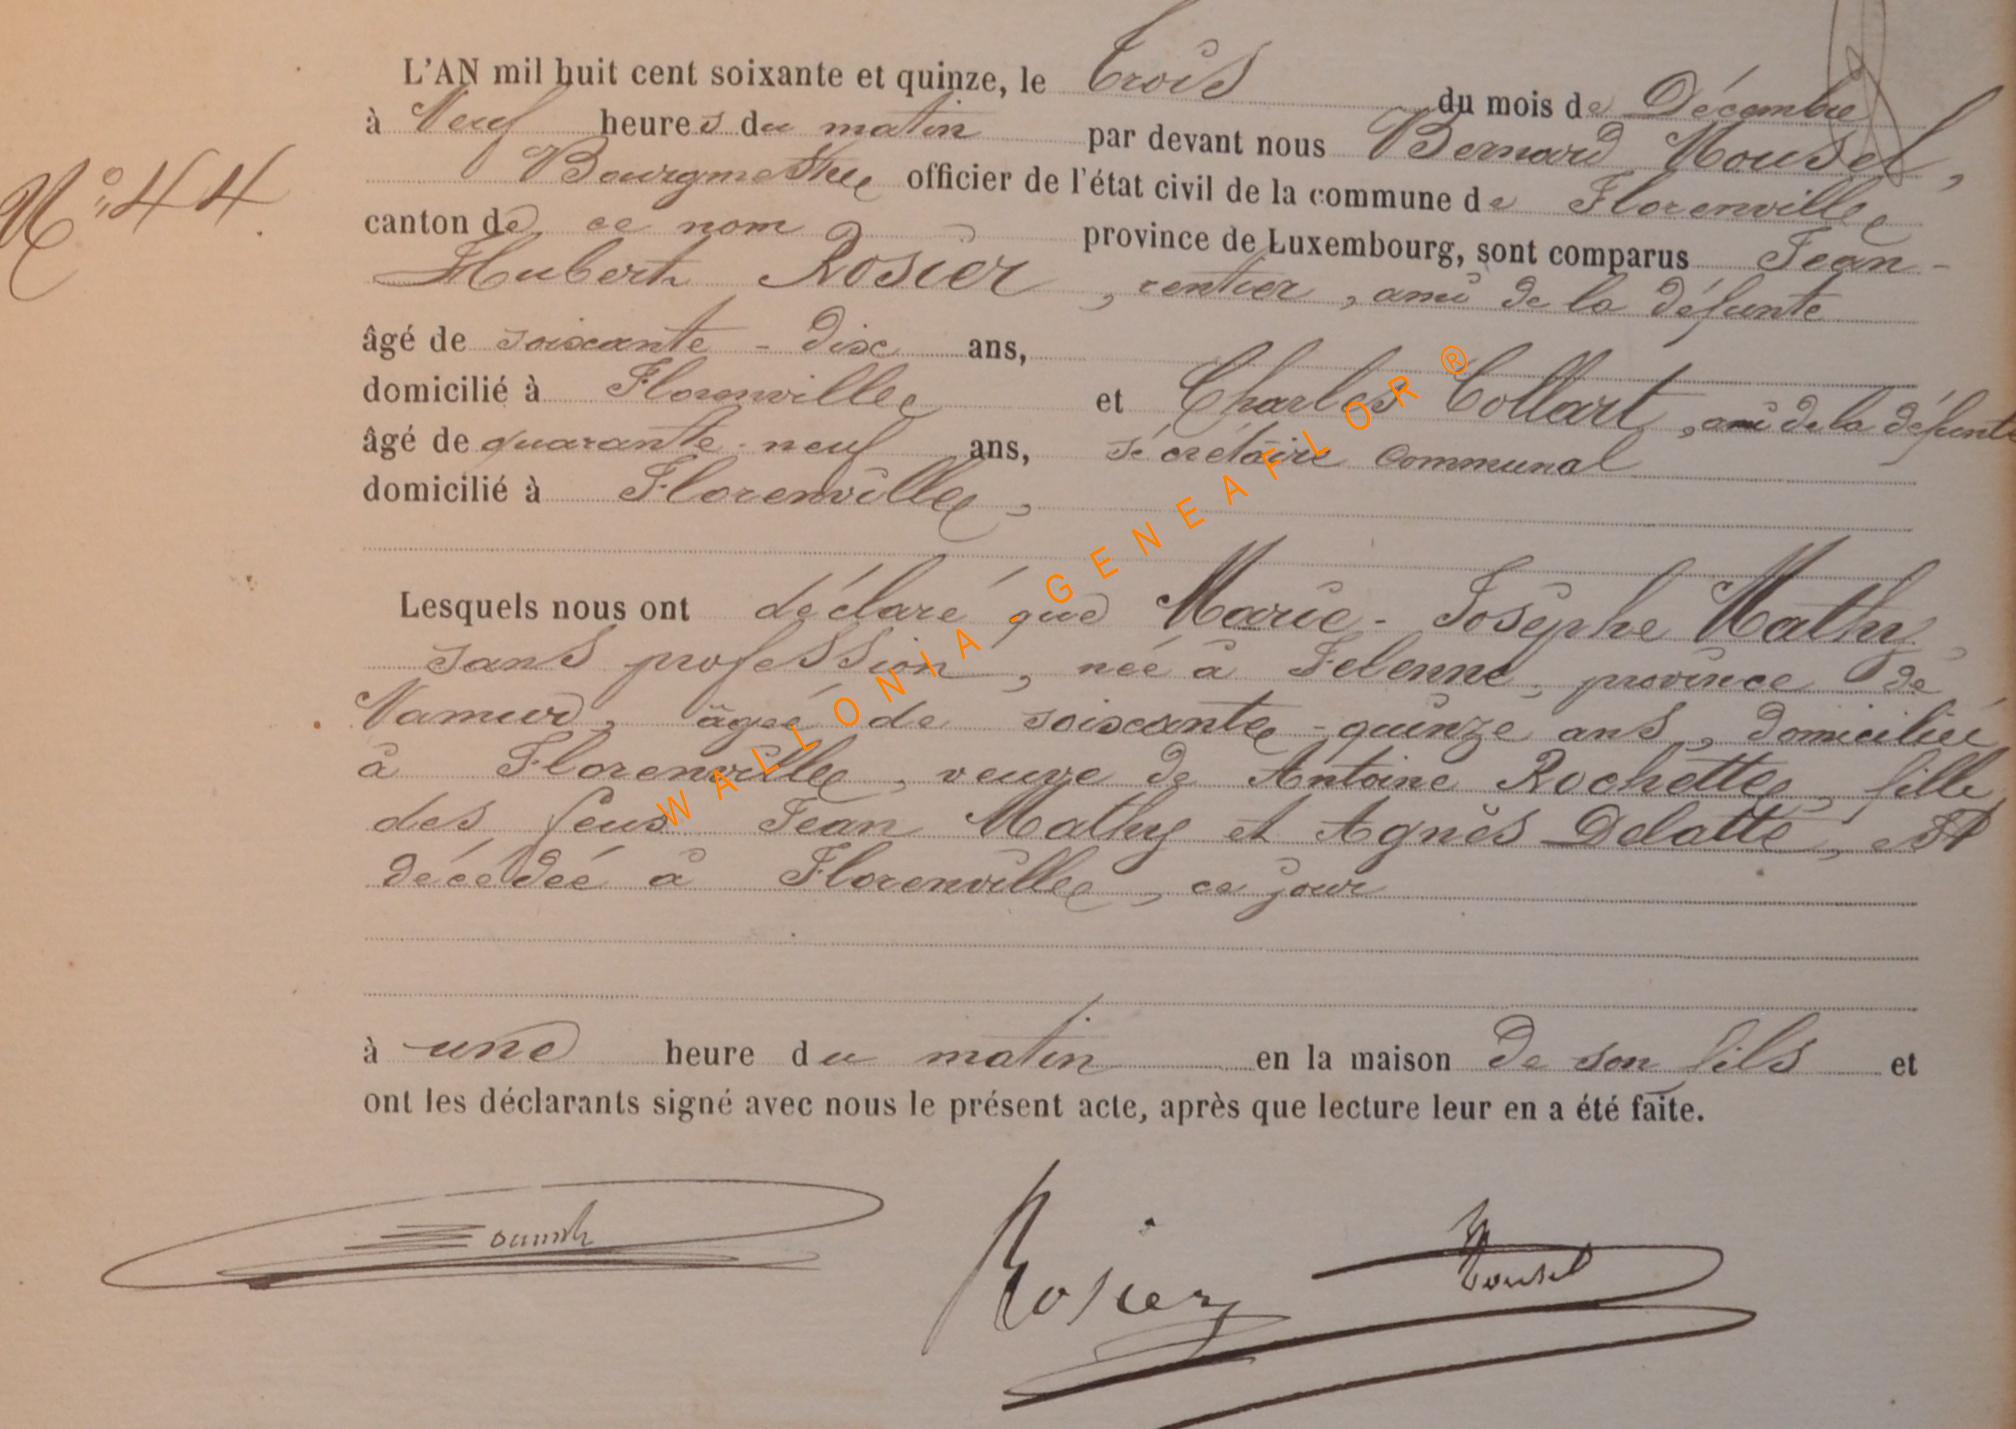 L'AN mil huit cent soixante et quinze, le Trois du mois de Décembre
à Neuf heures du matin par devant nous Bernard Mousel,
Bourgmestre officier de l'état civil de la commune de Florenville
canton de ce nom province de Luxembourg, sont comparus Jean-
Hubert Rosier, rentier, ami de la défunte
âgé de soixante-dix ans,
domicilié à Florenville et Charles Collart, ami de la défunte
âgé de quarante-neuf ans, sécrétaire communal
domicilié à Florenville,
N° 44.
Lesquels nous ont déclaré que Marie-Josèphe Mathy
sans profession, née à Felenne, province de
Namur, âgée de soixante-quinze ans, domiciliée
à Florenville, veuve de Antoine Rochette, fille
des feus Jean Mathy et Agnès Delatte, est
décédée à Florenville, ce jour
à une heure du matin en la maison de son fils et
ont les déclarants signé avec nous le présent acte, après que lecture leur en a été faite.
Rosier
Mousel
WALLONIA-GENEAFLOR®